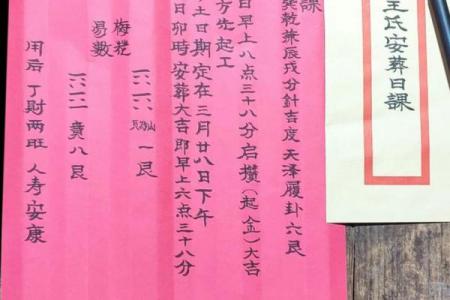 王氏安葬日課
課
巽乾兼辰戌分針吉度 天泽履卦六艮
日早上八点三十八分启攒(起金)大吉
方先起工
土日期定在三月廿八日下午
日卯時安葬大吉即早上六点三十八分
梅花
易数
一艮
賁八艮
用后丁財两旺人寿安康